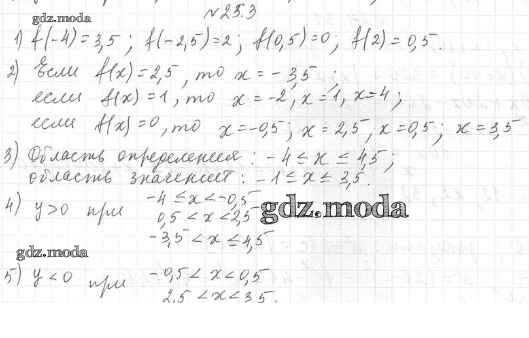 № 25.3
gdz.moda
1) f(-4)=3,5; f(-2,5)=2; f(0,5)=0; f(2)=0,5.
2) Если f(x)=2,5, то x=-3,5;
если f(x)=1, то x=-2, x=1, x=4;
если f(x)=0, то x=-0,5; x=2,5, x=0,5; x=3,5
3) Область определения: -4≤x≤4,5;
область значений: -1≤x≤3,5.
4) y>0 при -4≤x<-0,5
0,5<x<2,5
gdz.moda
-3,5<x≤4,5
gdz.moda
5) y<0 при -0,5<x<0,5
2,5<x<3,5.